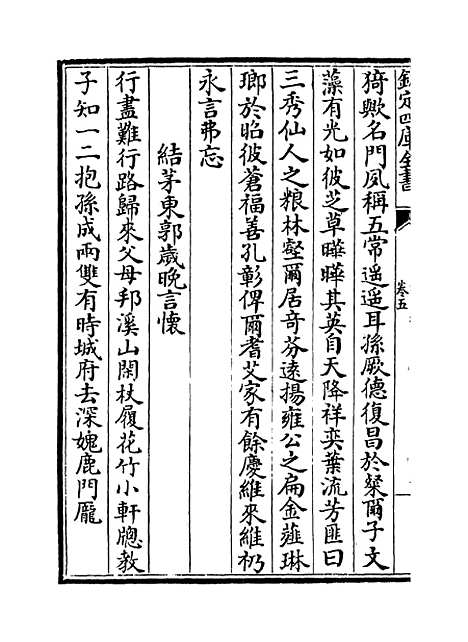 欽定四庫全書
卷五
猗歟名門夙稱五常遥遥耳孫厥德復昌於粲爾子文
藻有光如彼芝草曄曄其英自天降祥奕葉流芳匪曰
三秀仙人之粮林壑爾居竒芬逺揚雍公之扁金薤琳
瑯於昭彼蒼福善孔彰俾爾耆艾家有餘慶維來維礽
永言弗忘
結茅東郭歳晩言懐
行盡難行路歸來父母邦溪山閑杖履花竹小軒牕教
子知一二抱孫成兩雙有時城府去深媿鹿門龎